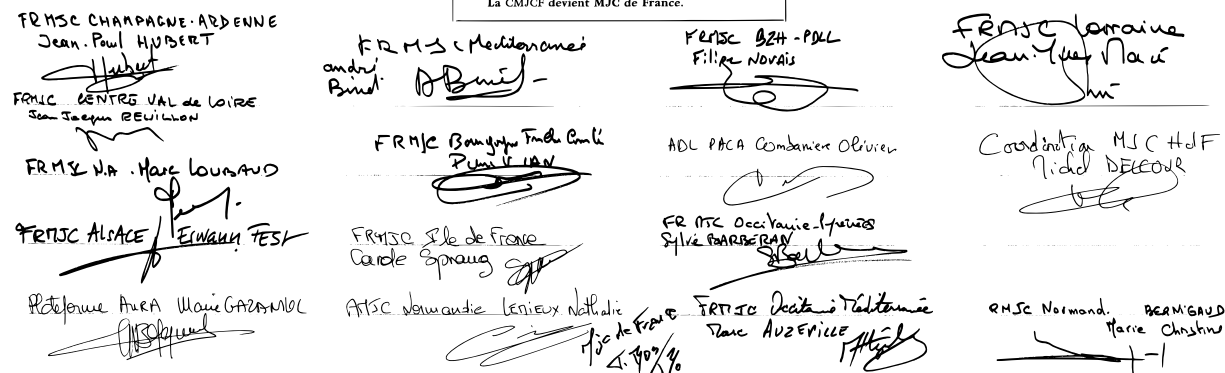 La CMJCF devient MJC de France.
FRMJC CHAMPAGNE-ARDENNE
Jean-Paul HUBERT
Hubert
FRMJC CENTRE VAL de LOIRE
Jean Jacques REVILLON
FRMJC N.A. Marc LOUBAUD
FRMJC ALSACE Erwann FEST
Plateforme AURA Marie GAZANIOL
FRMJC Mediterranée
André Binet
FRMJC Bourgogne Franche Comté
FRMJC Ile de France
Carole Spraug
AMJC Normandie LEMIEUX Nathalie
Mjc de France
FRMJC BZH-PDLL
Filipe NOVAIS
ADL PACA Combaniere Olivier
FRMJC Occitanie-Pyrénées
Sylvie BARBERAN
FRMJC Occitanie Méditerranée
Marc AUZEVILLE
FRMJC Lorraine
Jean-Yves Macé
Coordination MJC HdF
Michel DELCOUR
RMJC Normand. BERNIGAUD
Marie Christine